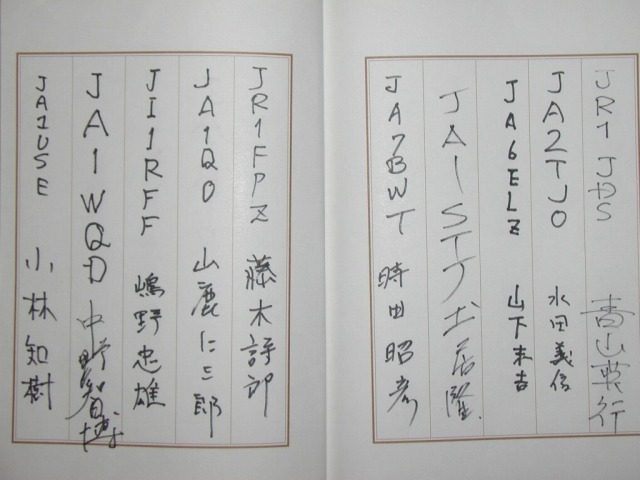 JR1JDS 青山英行
JA2TJO 水田義信
JA6ELZ 山下末吉
JA1STY 土居隆
JA7BWT 時田昭彦
JR1FPZ 藤木詩郎
JA1QO 山鹿仁三郎
JI1RFF 嶋野忠雄
JA1WQD 中野智博
JA1USE 小林知樹